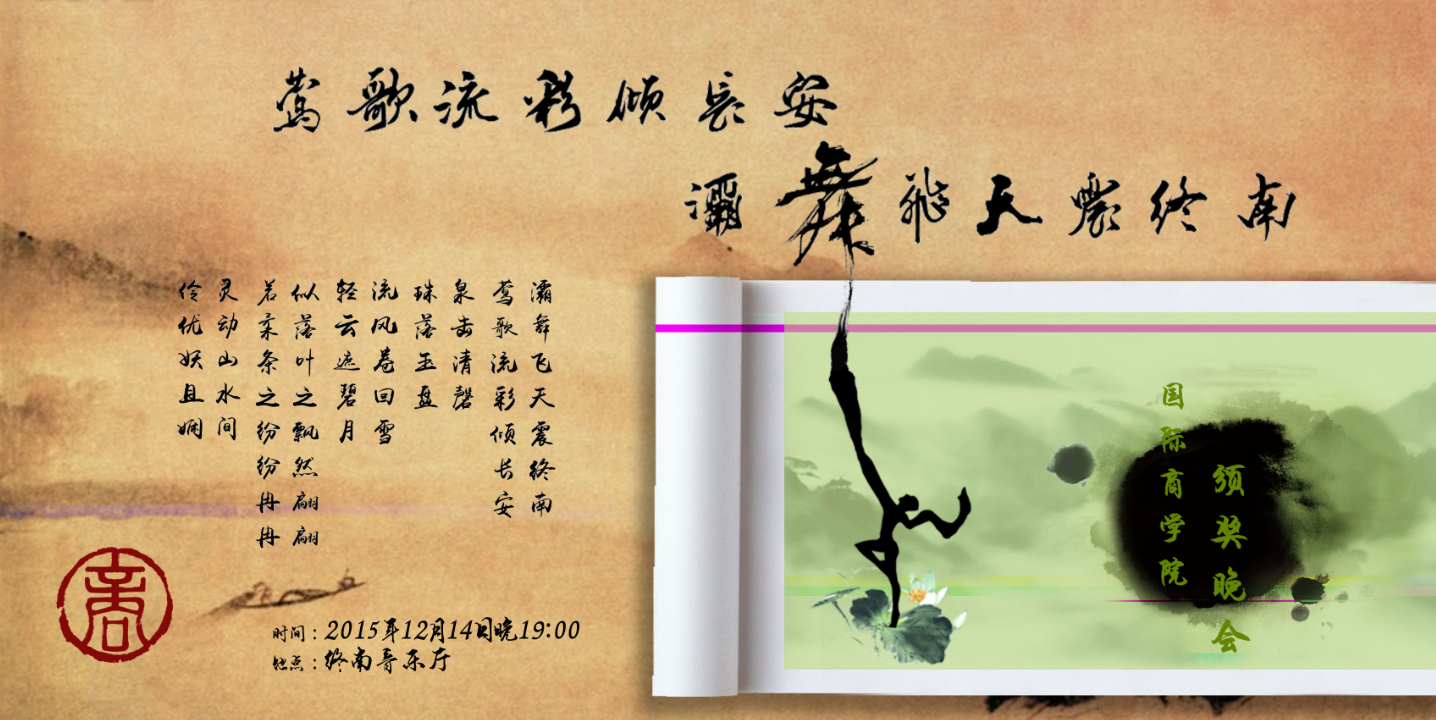 莺歌流彩倾長安
灞舞飛天震终南
灞舞飞天震终南
莺歌流彩倾长安
泉击清磬
珠落玉盘
流风卷回雪
轻云遮碧月
似落叶之飘然翩翩
若柔条之纷纷冉冉
灵动山水间
伶优妖且娴
商
时间：2015年12月14日晚19:00
地点：终南音乐厅
国际商学院
颁奖晚会